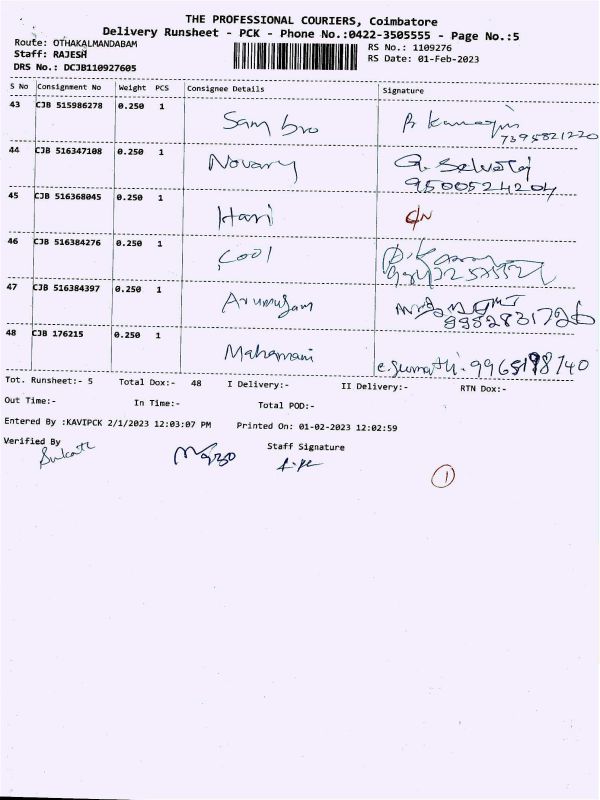 THE PROFESSIONAL COURIERS, Coimbatore
Delivery Runsheet - PCK - Phone No.:0422-3505555 - Page No.:5
Route: OTHAKALMANDABAM
RS No.: 1109276
Staff: RAJESH
RS Date: 01-Feb-2023
DRS No.: DCJB110927605
S No Consignment No Weight PCS Consignee Details Signature
43 CJB 515986278 0.250 1 Sam bro 7395821220
44 CJB 516347108 0.250 1 Novary G. Selvaraj 9500524204
45 CJB 516368045 0.250 1 Hari C/N
46 CJB 516384276 0.250 1 Cool
47 CJB 516384397 0.250 1 Arumugam
48 CJB 176215 0.250 1 Mahamani e. Sumathi.
Tot. Runsheet:- 5 Total Dox:- 48 I Delivery:- II Delivery:- RTN Dox:-
Out Time:- In Time:- Total POD:-
Entered By :KAVIPCK 2/1/2023 12:03:07 PM Printed On: 01-02-2023 12:02:59
Verified By Staff Signature
1